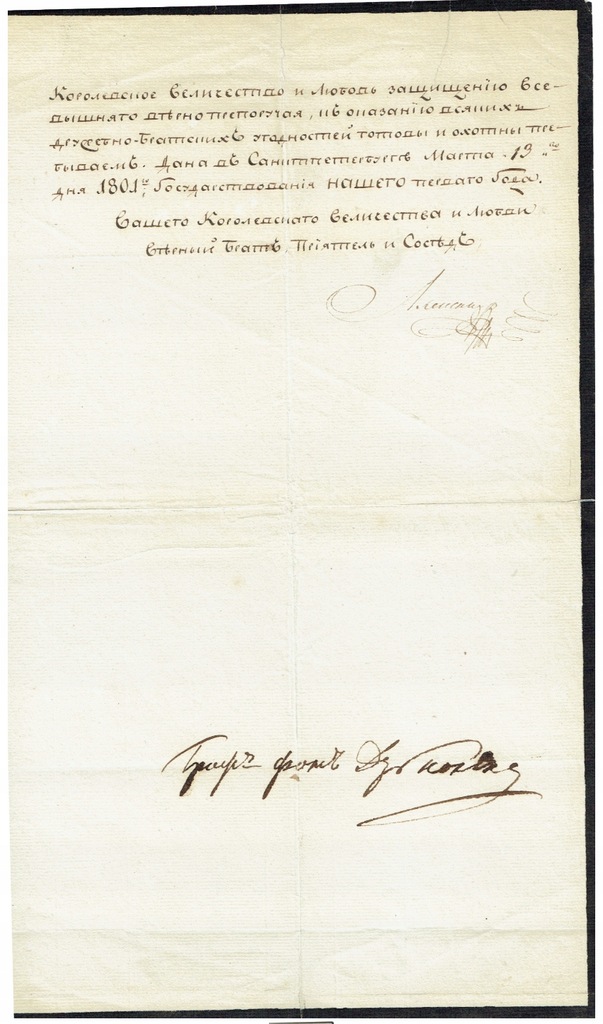 Королевское Величество и Любовь защищенію Все-
вышняго вѣрно препоручая, къ оказанію всякихъ
дружебно-братскихъ угодностей готовы и охотны пре-
бываемъ. Дана въ Санктпетербургѣ Марта 13.го
дня 1801го, Государствованія НАШЕГО перваго Года.
Вашего Королевскаго Величества и Любви
вѣрный братъ, Пріятель и Сосѣдъ
Александръ
Графъ фонъ